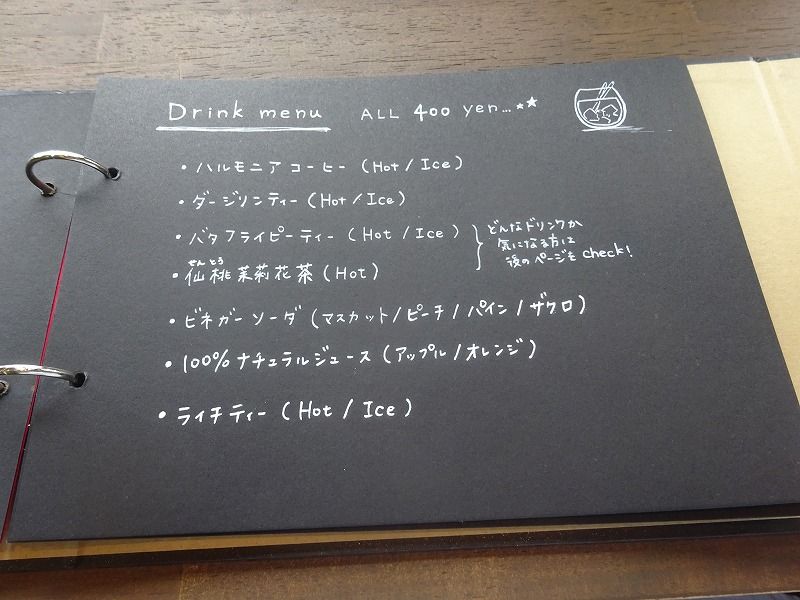 Drink menu ALL 400 yen...★★
・ハルモニアコーヒー (Hot / Ice)
・ダージリンティー (Hot / Ice)
・バタフライピーティー (Hot / Ice)
せんとう
・仙桃茉莉花茶 (Hot)
どんなドリンクか
気になる方は
後のページをcheck!
・ビネガーソーダ (マスカット/ピーチ/パイン/ザクロ)
・100%ナチュラルジュース (アップル/オレンジ)
・ライチティー (Hot / Ice)